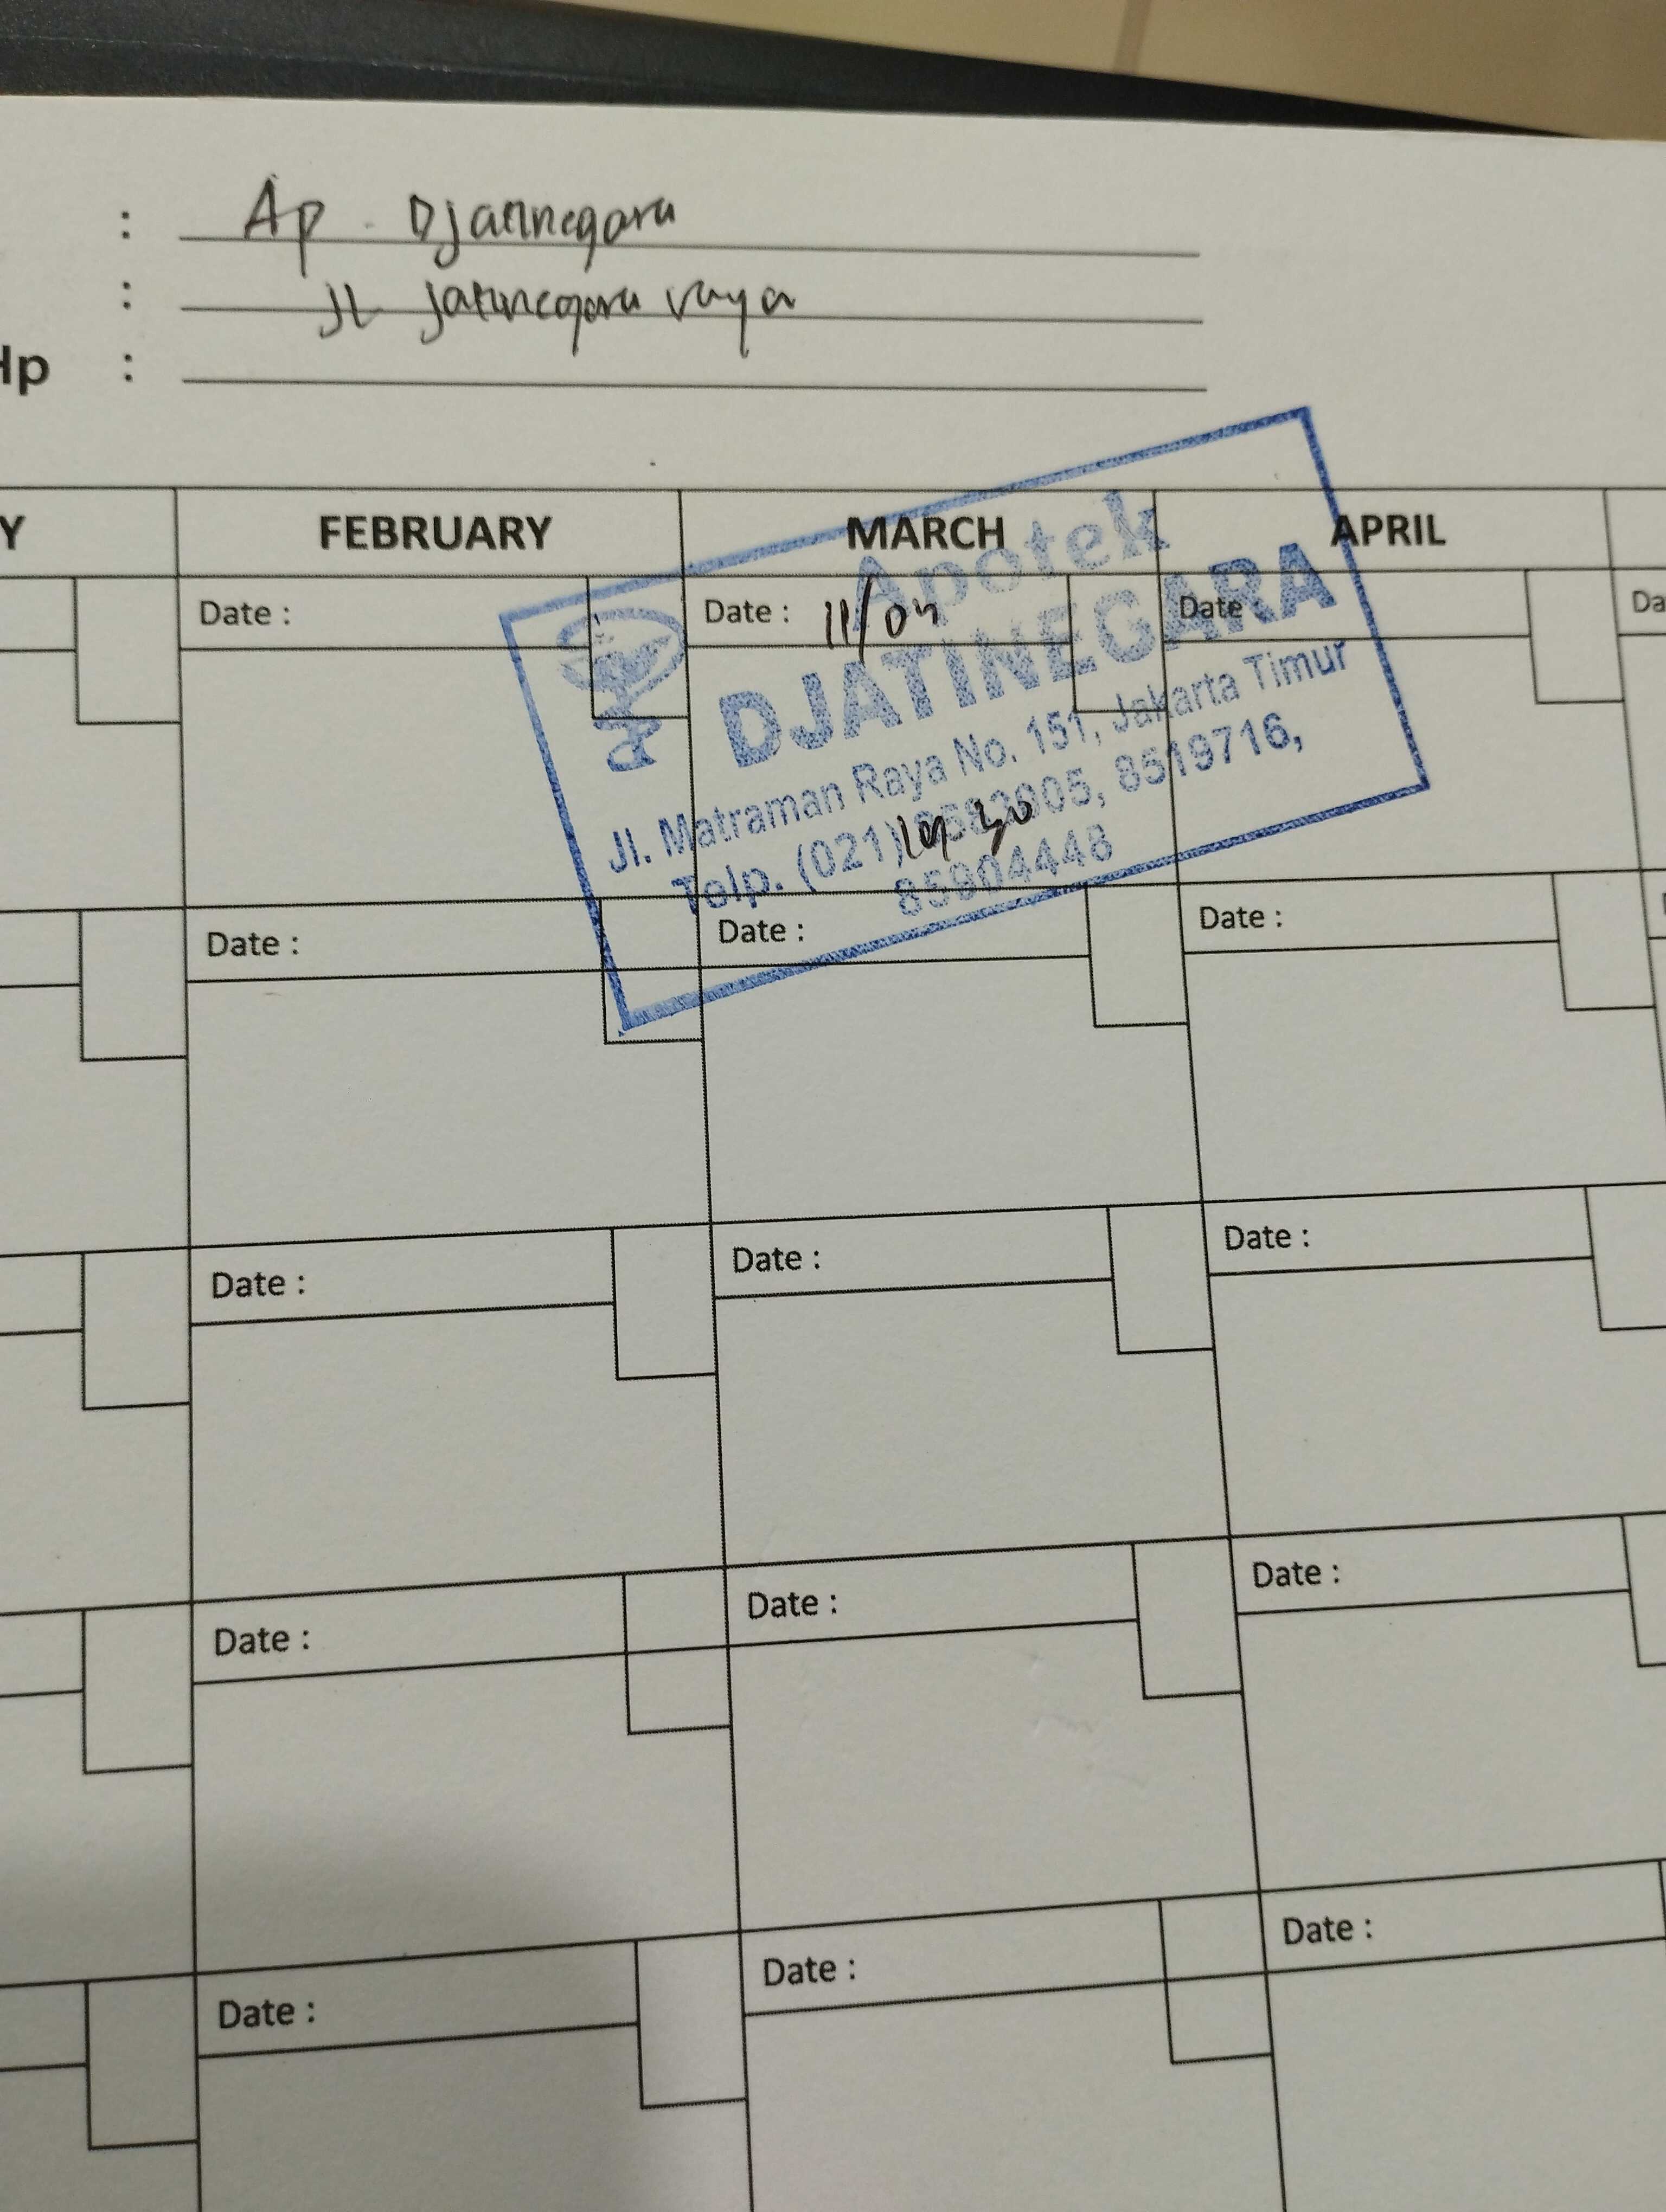 : Ap. Djatinegara
: Jl Jatinegara raya
Hp :
Y FEBRUARY MARCH APRIL
Date : Date : 11/03 Date : Da
Apotek
DJATINEGARA
Jl. Matraman Raya No. 151, Jakarta Timur
Telp. (021) 8519716,
85904448
Date : Date : Date :
Date : Date : Date :
Date : Date : Date :
Date : Date : Date :